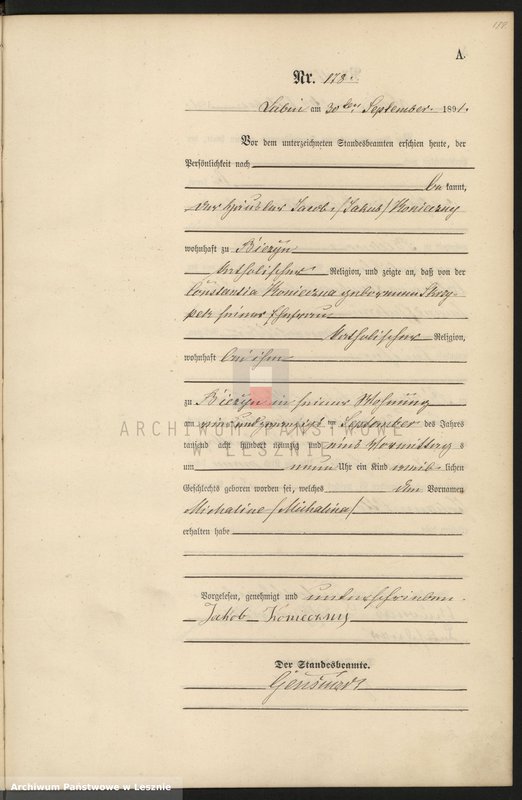 188
A.
Nr. 178.
Lubin am 30ten September 1891.
Vor dem unterzeichneten Standesbeamten erschien heute, der
Persönlichkeit nach
bekannt,
der Häusler Jacob /Jakub/ Konieczny
wohnhaft zu Bieżyn
katholischer Religion, und zeigte an, daß von der
Constantia Konieczna geborenen
seiner Ehefrau
katholischer Religion,
wohnhaft bei ihm
zu Bieżyn in seiner Wohnung
am ten September des Jahres
tausend acht hundert neunzig und eins Vormittag s
um neun Uhr ein Kind weib lichen
Geschlechts geboren worden sei, welches den Vornamen
Michaline /Michalina/
erhalten habe
Vorgelesen, genehmigt und unterschrieben.
Jakob Konieczny
Der Standesbeamte.
ARCHIWUM PAŃSTWOWE
W LESZNIE
Archiwum Państwowe w Lesznie